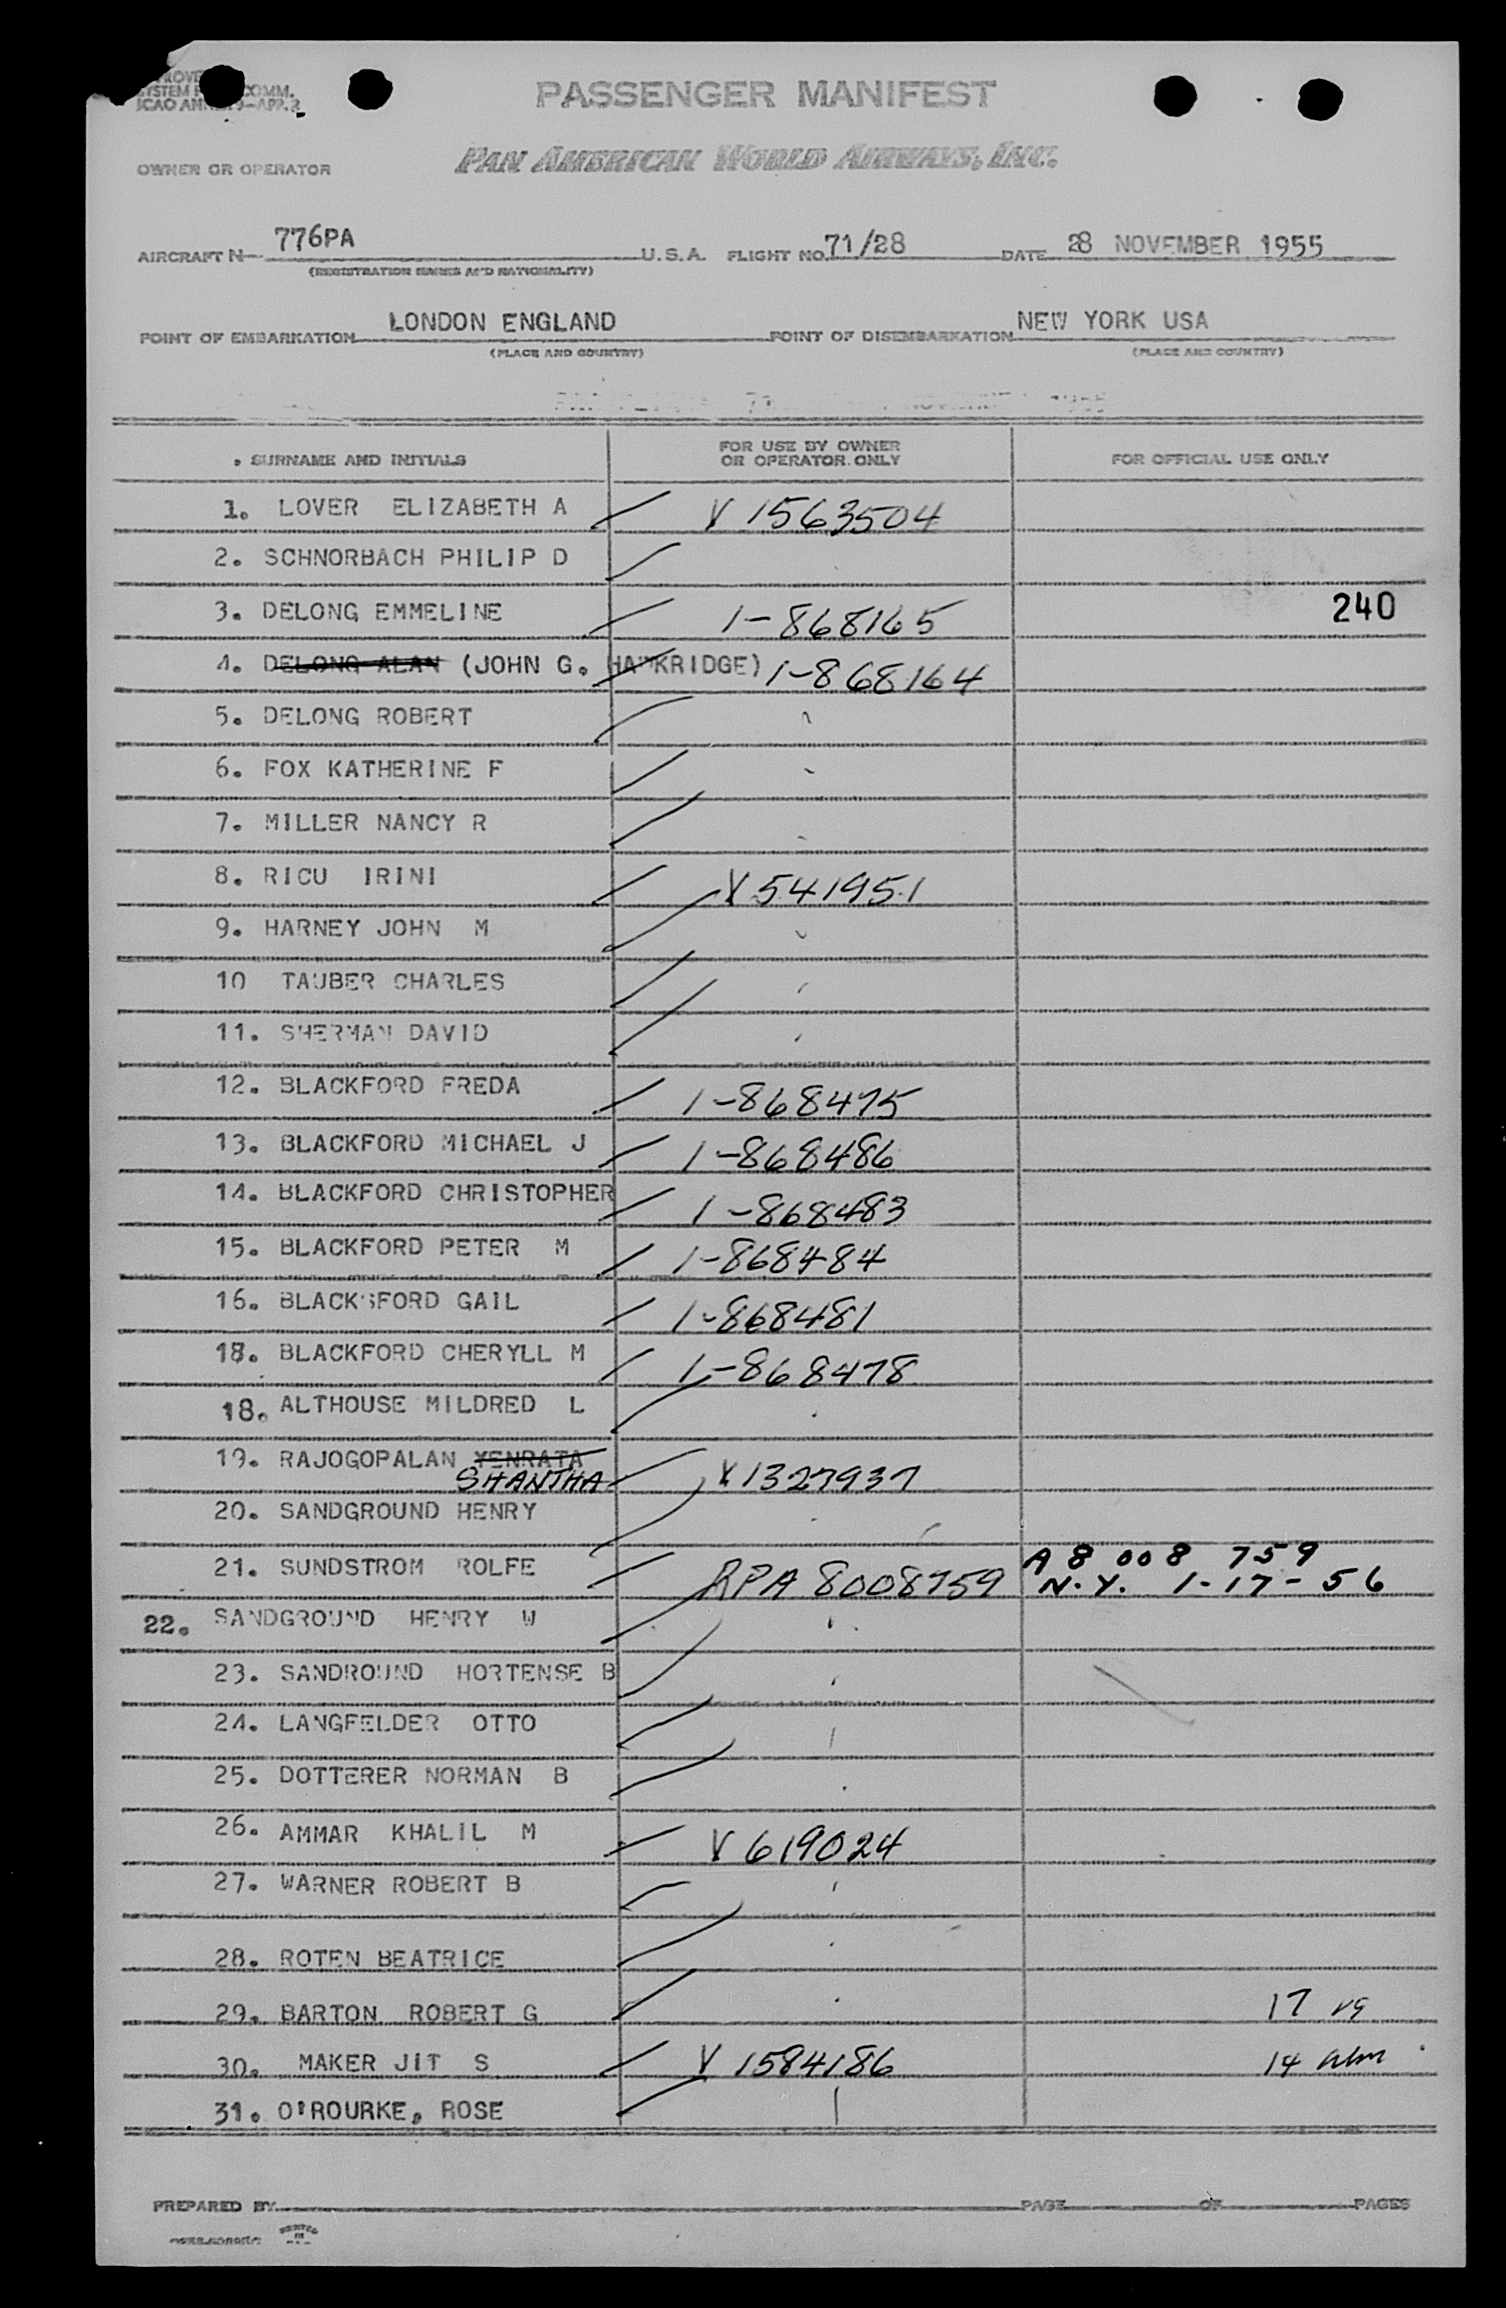 COMM.
PASSENGER MANIFEST
OWNER OR OPERATOR PAN AMERICAN WORLD AIRWAYS, INC.
AIRCRAFT N 776PA U.S.A. FLIGHT NO. 71/28 DATE 28 NOVEMBER 1955
(REGISTRATION MARKS AND NATIONALITY)
POINT OF EMBARKATION LONDON ENGLAND POINT OF DISEMBARKATION NEW YORK USA
(PLACE AND COUNTRY) (PLACE AND COUNTRY)
SURNAME AND INITIALS FOR USE BY OWNER OR OPERATOR ONLY FOR OFFICIAL USE ONLY
1. LOVER ELIZABETH A V 1563504
2. SCHNORBACH PHILIP D
3. DELONG EMMELINE 1-868165 240
4. DELONG ALAN (JOHN G. HAWKRIDGE) 1-868164
5. DELONG ROBERT
6. FOX KATHERINE F
7. MILLER NANCY R
8. RICU IRINI V 541951
9. HARNEY JOHN M
10 TAUBER CHARLES
11. SHERMAN DAVID
12. BLACKFORD FREDA 1-868475
13. BLACKFORD MICHAEL J 1-868486
14. BLACKFORD CHRISTOPHER 1-868483
15. BLACKFORD PETER M 1-868484
16. BLACKSFORD GAIL 1-868481
18. BLACKFORD CHERYLL M 1-868478
18. ALTHOUSE MILDRED L
19. RAJOGOPALAN YENRATA V 1327937
SHANTHA
20. SANDGROUND HENRY
21. SUNDSTROM ROLFE RPA 8008759 A 8 008 759
N.Y. 1-17-56
22. SANDGROUND HENRY W
23. SANDROUND HORTENSE B
24. LANGFELDER OTTO
25. DOTTERER NORMAN B
26. AMMAR KHALIL M V 619024
27. WARNER ROBERT B
28. ROTEN BEATRICE
29. BARTON ROBERT G 17
30. MAKER JIT S V 1584186 14
31. O'ROURKE, ROSE
PREPARED BY PAGE OF PAGES